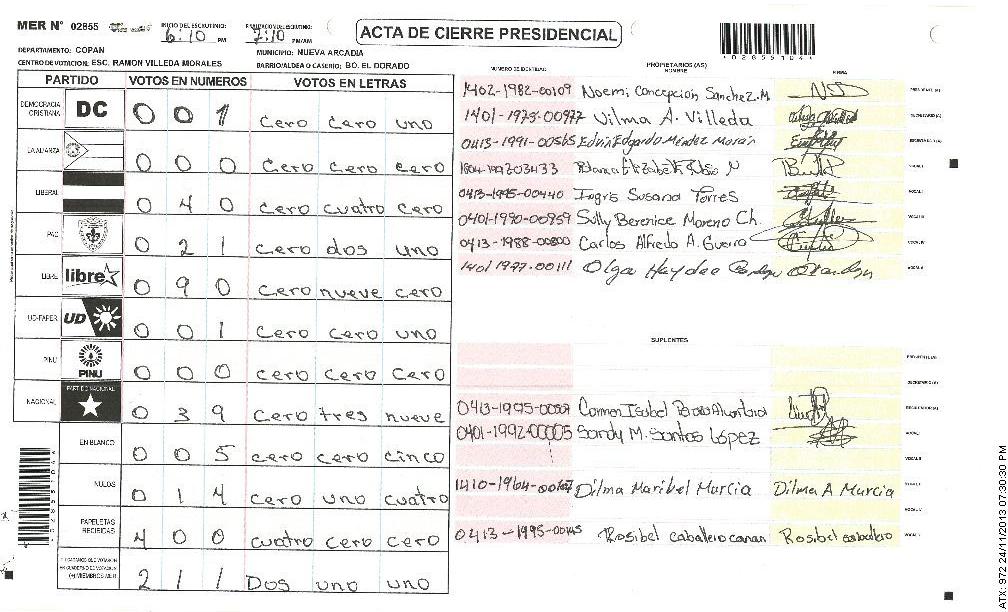 MER N° 02855
INICIO DEL ESCRUTINIO:
6:10 PM
FINALIZACION ESCRUTINIO:
7:10 PM/AM
ACTA DE CIERRE PRESIDENCIAL
0 2 8 5 5 1 0 4
DEPARTAMENTO: COPAN
MUNICIPIO: NUEVA ARCADIA
CENTRO DE VOTACION: ESC. RAMON VILLEDA MORALES
BARRIO/ALDEA O CASERIO: BO. EL DORADO
PARTIDO VOTOS EN NUMEROS VOTOS EN LETRAS
DEMOCRACIA CRISTIANA DC 0 0 1 cero cero uno
LA ALIANZA 0 0 0 cero cero cero
LIBERAL 0 4 0 cero cuatro cero
PAC 0 2 1 cero dos uno
LIBRE libre 0 9 0 cero nueve cero
UD-FAPER UD 0 0 1 cero cero uno
PINU PINU 0 0 0 cero cero cero
NACIONAL PARTIDO NACIONAL 0 3 9 cero tres nueve
EN BLANCO 0 0 5 cero cero cinco
NULOS 0 1 4 cero uno cuatro
PAPELETAS RECIBIDAS 4 0 0 cuatro cero cero
(+) MIEMBROS MER 2 1 1 Dos uno uno
NUMERO DE IDENTIDAD PROPIETARIOS (AS) NOMBRE FIRMA
1402-1982-00109 Noemi Concepcion Sanchez.M. PRESIDENTE (A)
1401-1975-00977 Vilma A. Villeda SECRETARIO (A)
0413-1991-00565 Edvin Edgardo Méndez Morán ESCRUTADOR (A)
VOCAL I
0413-1995-00440 Ingris Susana Torres VOCAL II
0401-1990-00959 Sully Berenice Moreno Ch. VOCAL III
0413-1988-00800 Carlos Alfredo A. Guerro VOCAL IV
1401 1977-00111 Olga Haydee VOCAL V
SUPLENTES
PRESIDENTE (A)
SECRETARIO (A)
Carmen Isabel ESCRUTADOR (A)
0401-1992-00005 Sandy M. Santos López VOCAL I
VOCAL II
Dilma Maribel Murcia Dilma A Murcia VOCAL III
VOCAL IV
Rosibel caballero Rosibel caballero VOCAL V
ATX: 972 24/11/2013 07:30:30 PM